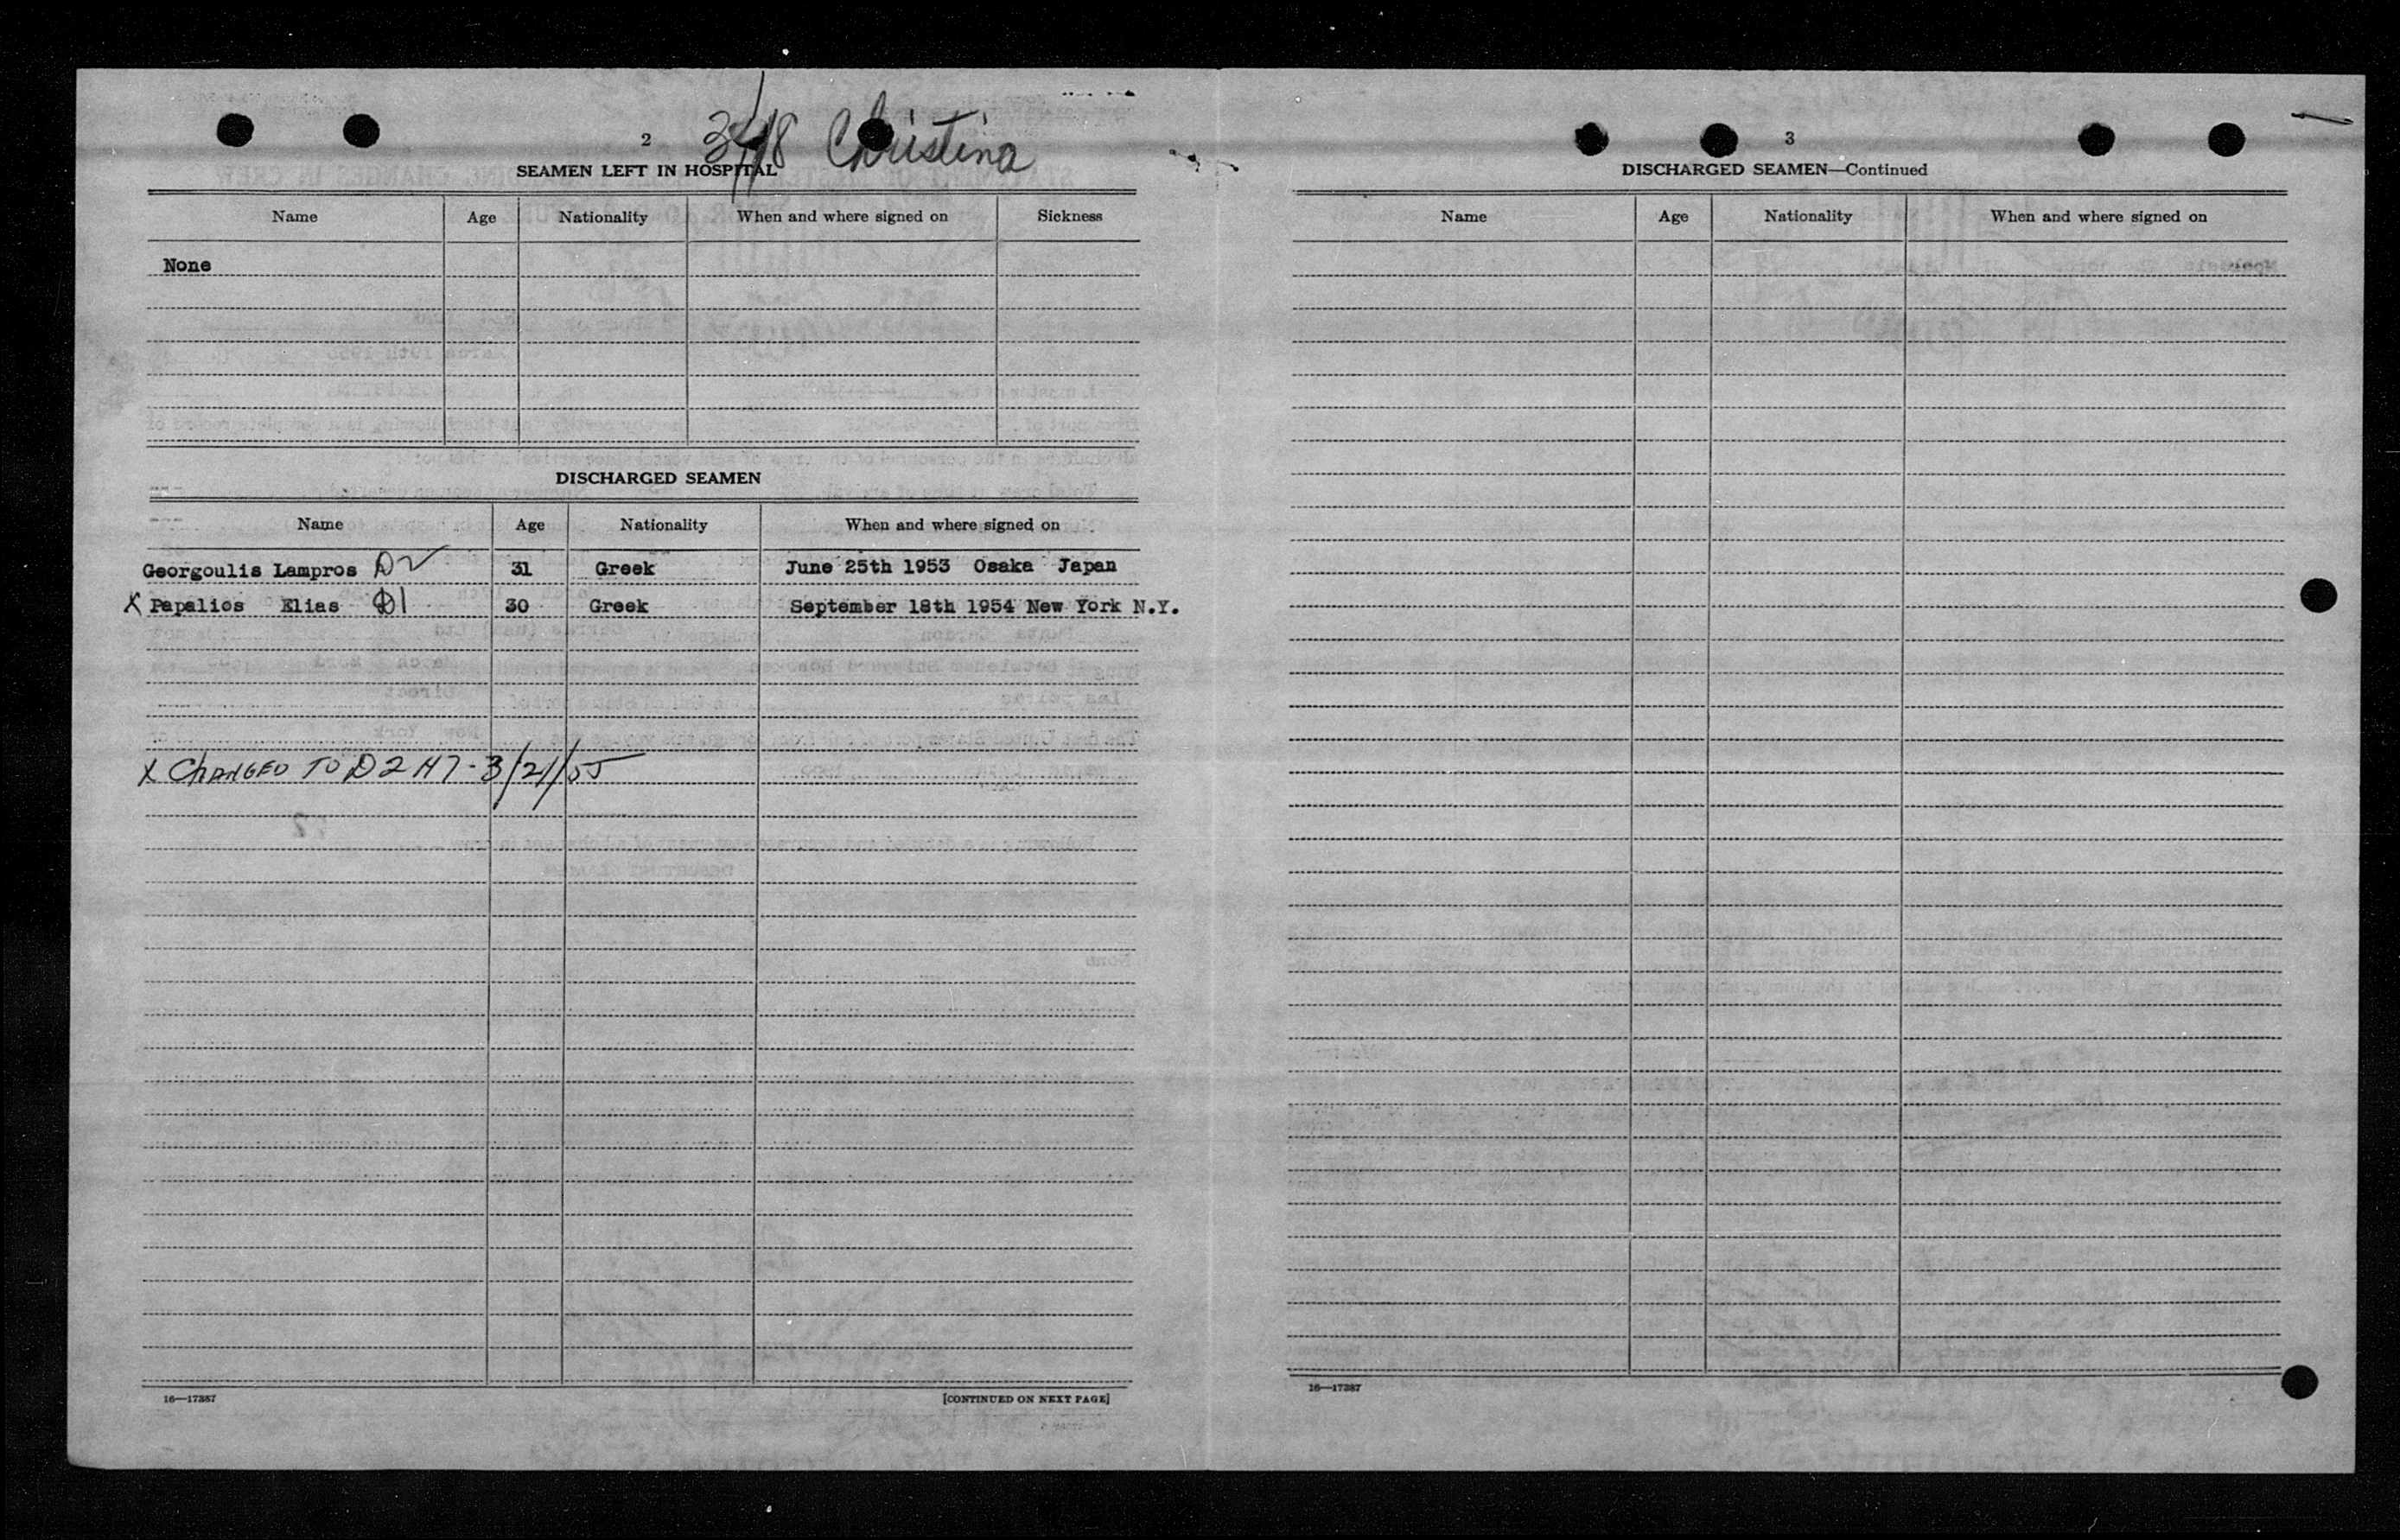 2
3/18 Christina
SEAMEN LEFT IN HOSPITAL
Name Age Nationality When and where signed on Sickness
None
DISCHARGED SEAMEN
Name Age Nationality When and where signed on
Georgoulis Lampros D2 31 Greek June 25th 1953 Osaka Japan
X Papalios Elias D1 30 Greek September 18th 1954 New York N.Y.
X CHANGED TO D2 - 3/21/55
16—17387 [CONTINUED ON NEXT PAGE]
3
DISCHARGED SEAMEN—Continued
Name Age Nationality When and where signed on
16—17387